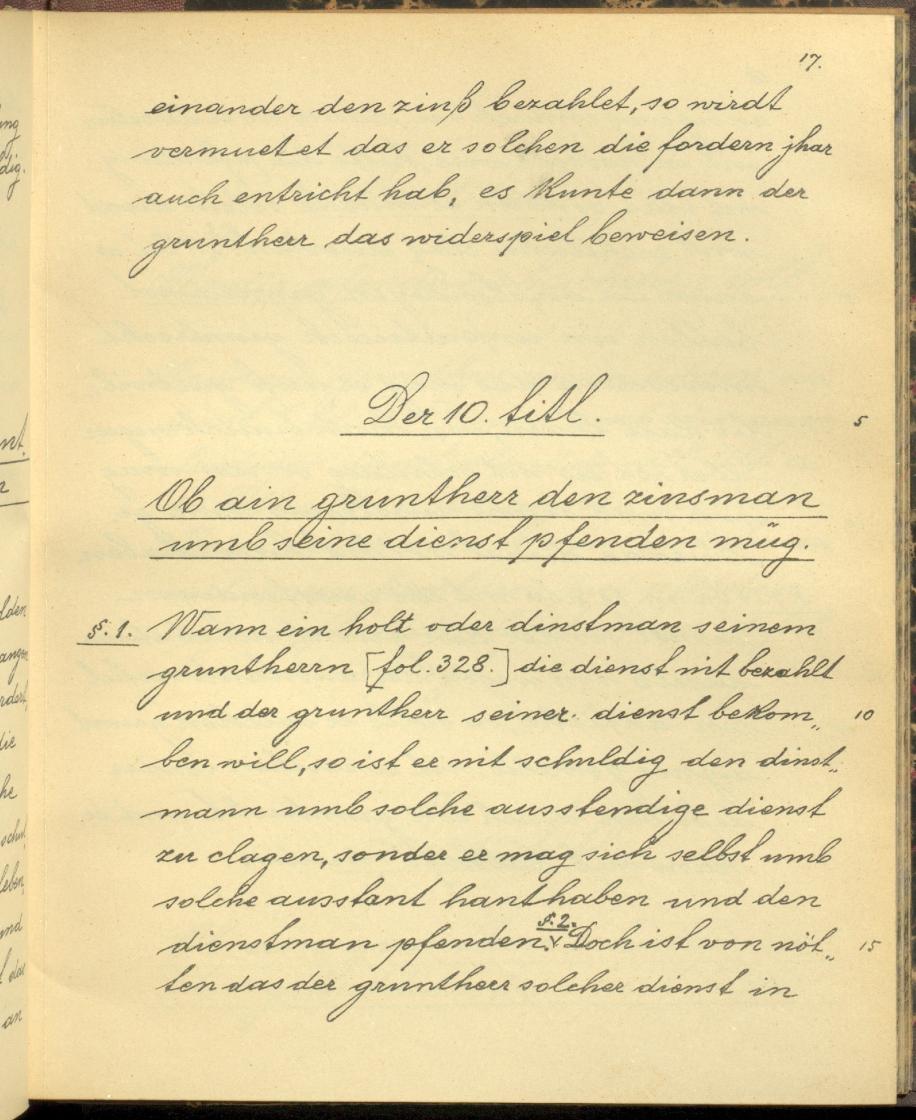 17.
einander den zinß bezahlet, so wirdt
vermuetet das er solchen die fordern jhar
auch entricht hab, es kunte dann der
gruntherr das widerspiel beweisen.
Der 10. titl.
5
Ob ain gruntherr den zinsman
umb seine dienst pfenden müg.
§. 1. Wann ein holt oder dinstman seinem
gruntherrn [fol. 328.] die dienst nit bezahlt
und der gruntherr seiner dienst bekom„
10
ben will, so ist er nit schuldig den dinst„
mann umb solche ausstendige dienst
zu clagen, sonder er mag sich selbst umb
solche ausstant hanthaben und den
§. 2.
dienstman pfenden. Doch ist von nöt„
15
ten das der gruntherr solcher dienst in